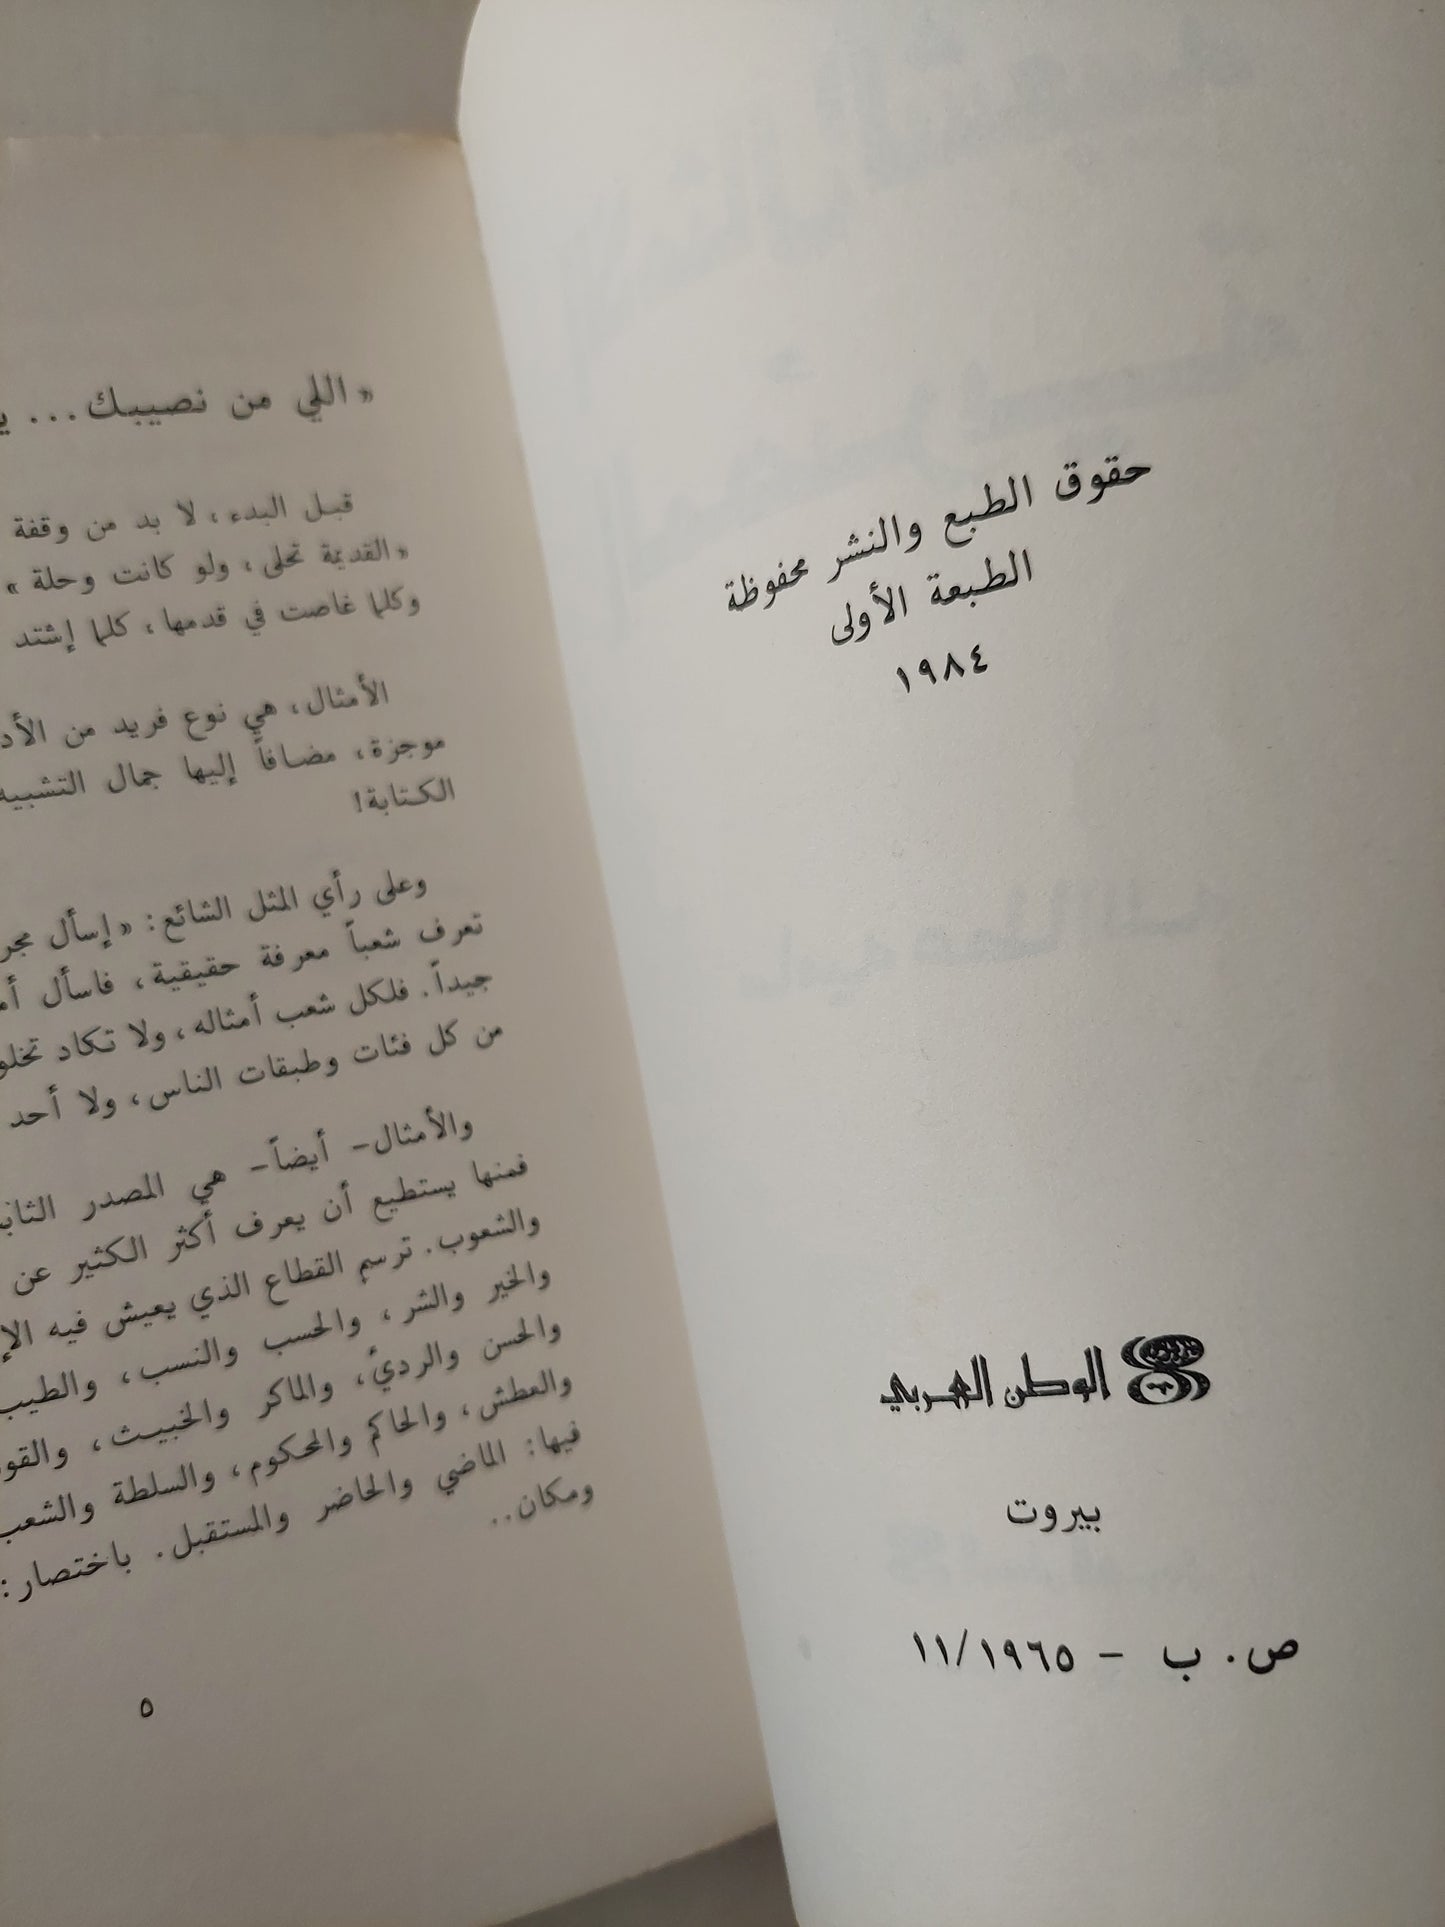 حقوق الطبع والنشر محفوظة
الطبعة الأولى
١٩٨٤
الوطن العربي
بيروت
ص. ب - ١١/١٩٦٥
« اللي من نصيبك...
قبل البدء، لا بد من وقفة
«القديمة تحلى، ولو كانت وحلة »
وكلما غاصت في قدمها، كلما إشتد
الأمثال، هي نوع فريد من
موجزة، مضافاً إليها جمال التشبيه
الكتابة!
وعلى رأي المثل الشائع: «إسأل
تعرف شعباً معرفة حقيقية، فاسأل
جيداً. فلكل شعب أمثاله، ولا تكاد
من كل فئات وطبقات الناس، ولا أحد
والأمثال- أيضاً- هي المصدر
فمنها يستطيع أن يعرف أكثر الكثير عن
والشعوب. ترسم القطاع الذي يعيش فيه
والخير والشر، والحسب والنسب، والطيب
والحسن والردئ، والماكر والخبيث،
والعطش، والحاكم والمحكوم، والسلطة والشعب
فيها: الماضي والحاضر والمستقبل. باختصار:
ومكان..
٥